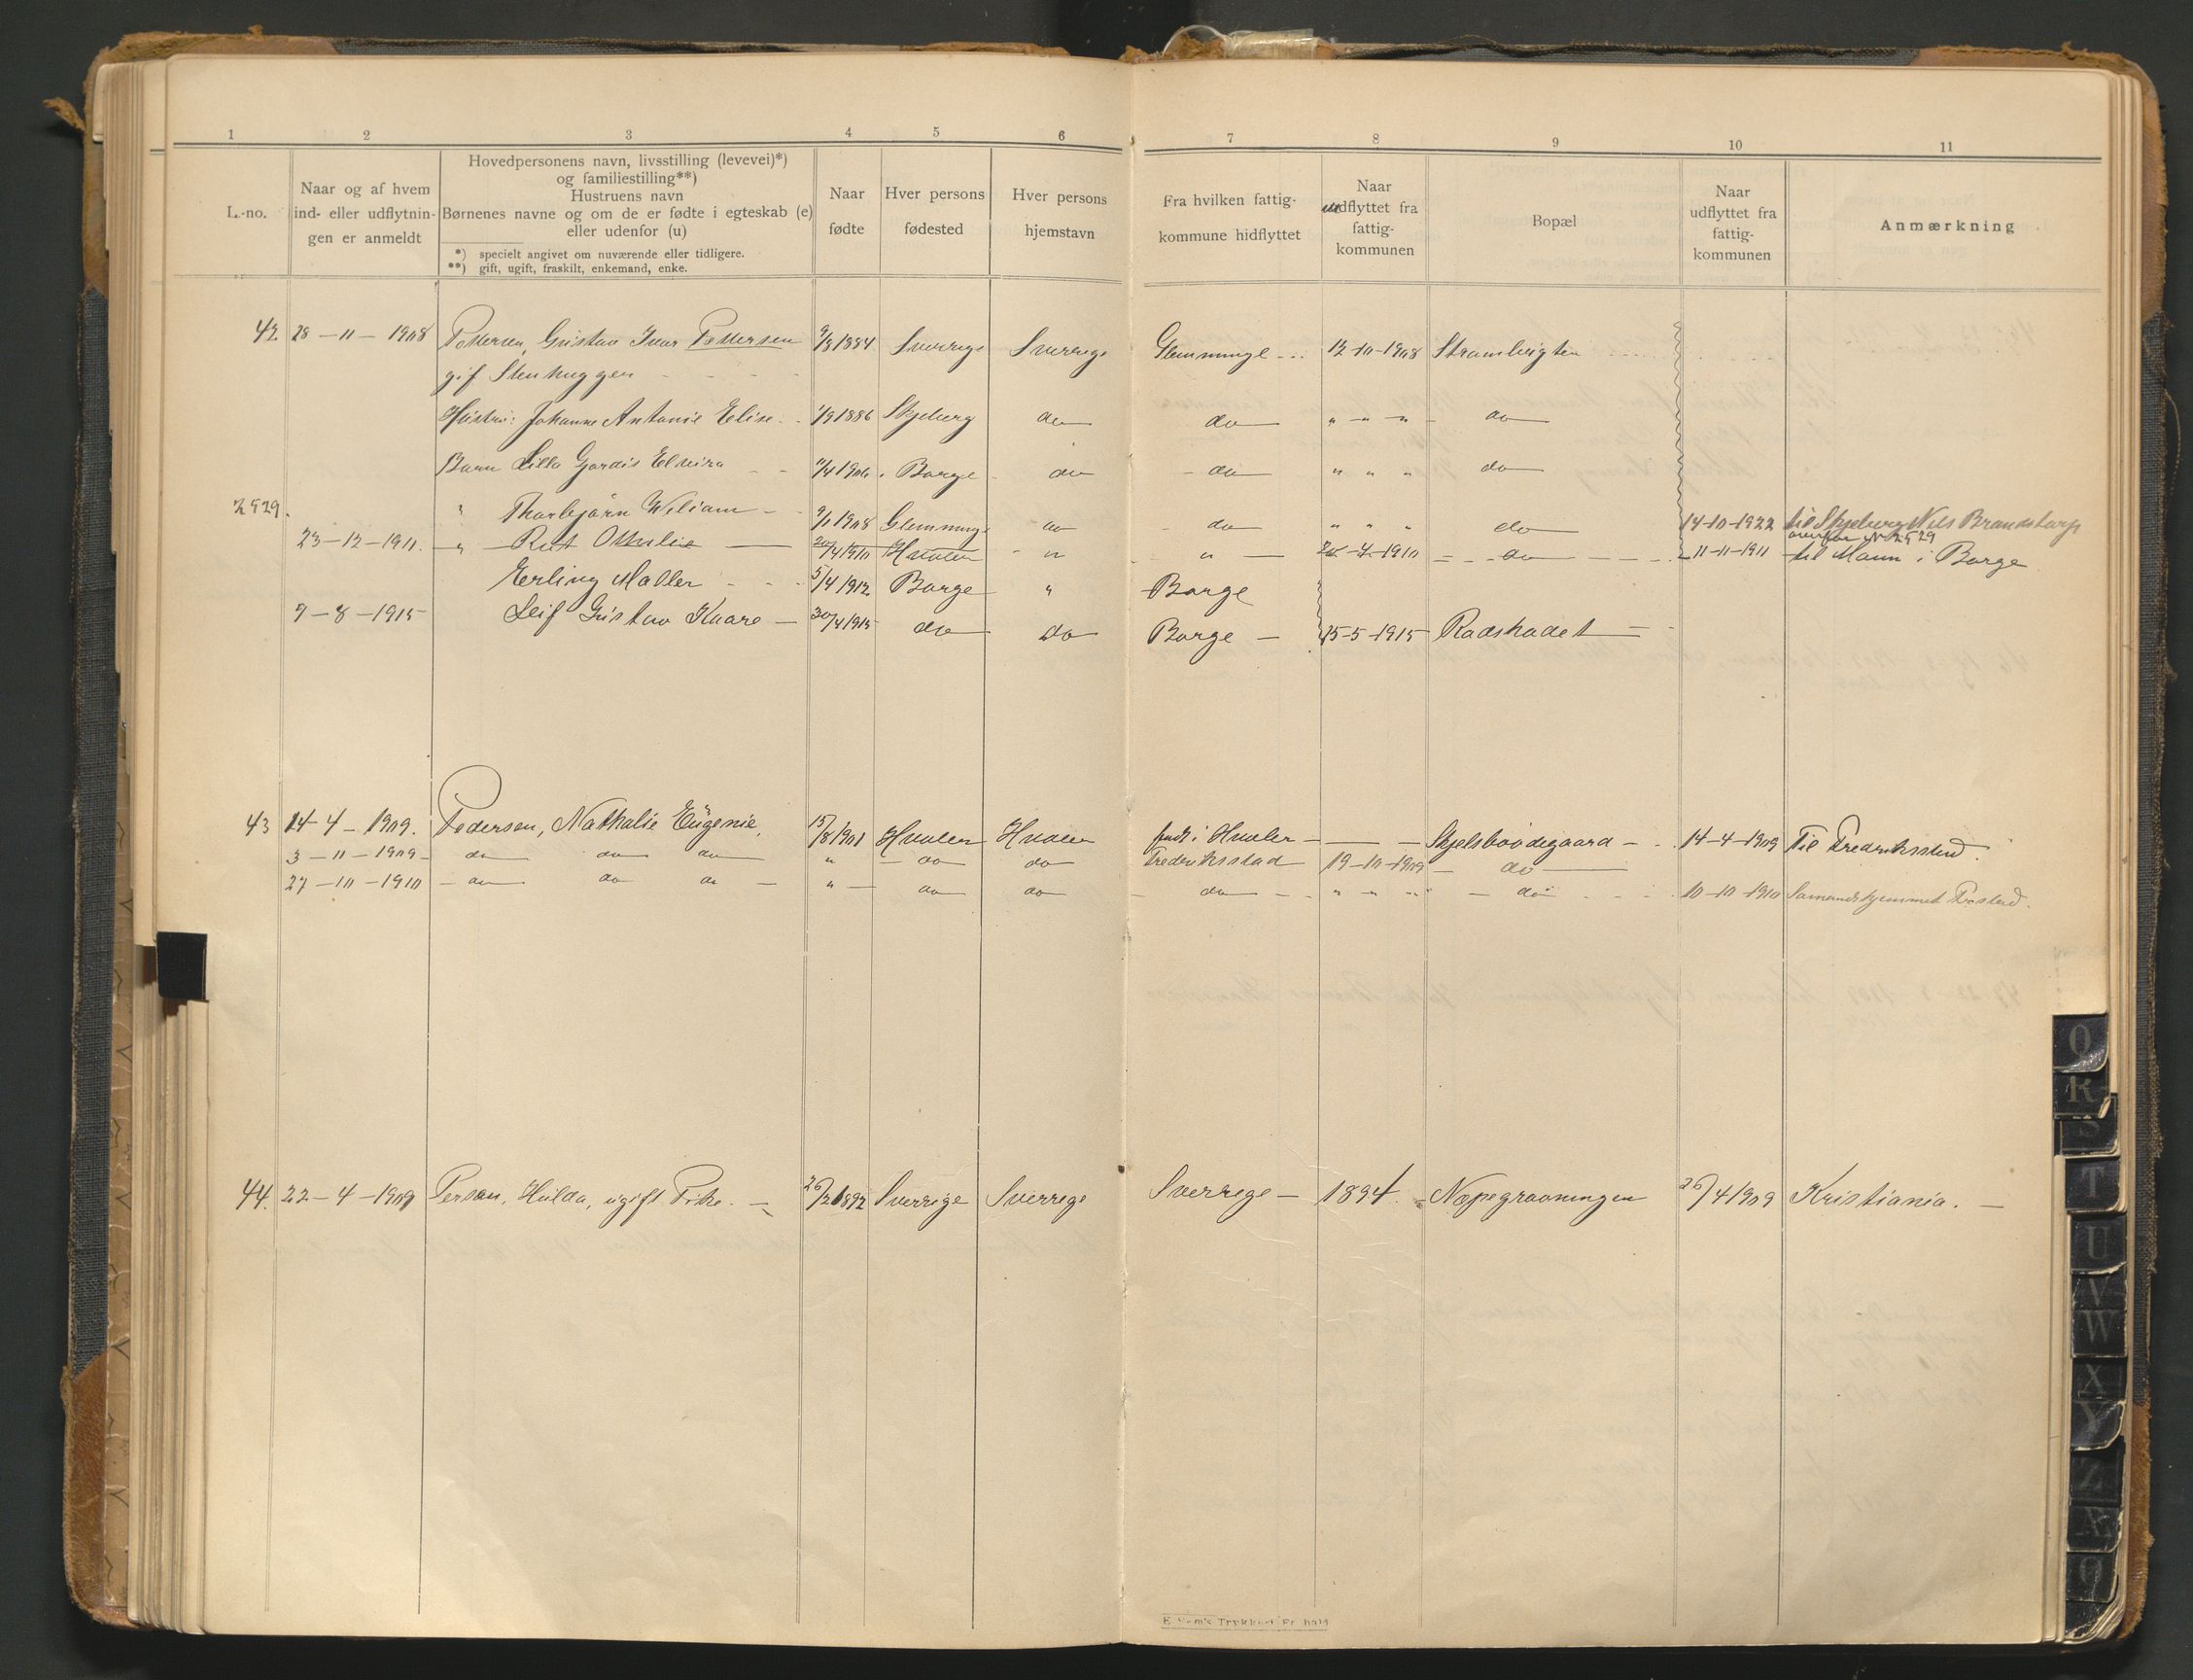 1 2 3 4 5 6 7 8 9 10 11
L.-no.
Naar og af hvem
ind- eller udflytnin-
gen er anmeldt
Hovedpersonens navn, livsstilling (levevei)*)
og familiestilling**)
Hustruens navn
Børnenes navne og om de er fødte i egteskab (e)
eller udenfor (u)
*) specielt angivet om nuværende eller tidligere.
**) gift, ugift, fraskilt, enkemand, enke.
Naar
fødte
Hver persons
fødested
Hver persons
hjemstavn
Fra hvilken fattig-
kommune hidflyttet
Naar
udflyttet fra
fattig-
kommunen
Bopæl
Naar
udflyttet fra
fattig-
kommunen
Anmærkning
42. 28-11-1908 Pettersen, Gustav Ivar Pettersen 9/8 1884 Sverrige Sverrige Glemminge 12-10-1908
gif Stenhugger
Hustru: Johanne Antonie Elise 1/9 1886 Skjeberg do do " - " - " do
Barn Lilla Gjordis Elvira 11/4 1906 Borge do do " " " do
2529. " Thorbjørn Wiliam 9/1 1908 Glemminge do do " " " do 14-10-1922 til Skjeberg Nils Brandstorp
overfor No 2529
23-12-1911. " Rut Othilie 20/4 1910 Hvaler " " 20-4-1910 do 11-11-1911 til Mann i Borge
Erling Møller 5/4 1912 Borge " Borge
9-8-1915 Leif Gustav Kaare 30/4 1915 do do Borge 15-5-1915 Rødshodet
43 14-4-1909. Pedersen, Nathalie Eugenie, 15/8 1901 Hvaler Hvaler født i Hvaler Skjelsbovdegaard 14-4-1909 Til Fredriksstad.
3-11-1909 do do do " do do Fredriksstad 19-10-1909 do
27-10-1910 do do do " do do do " " " do 10-10-1910
44. 22-4-1909 Persen, Hulda, ugift Pike. 26/2 1892 Sverrige Sverrige Sverrege 1894. Næpegravningen 26/4 1909 Kristiania.
Q
R
S
T
U
V
W
X
Y
Z
Æ
Ø